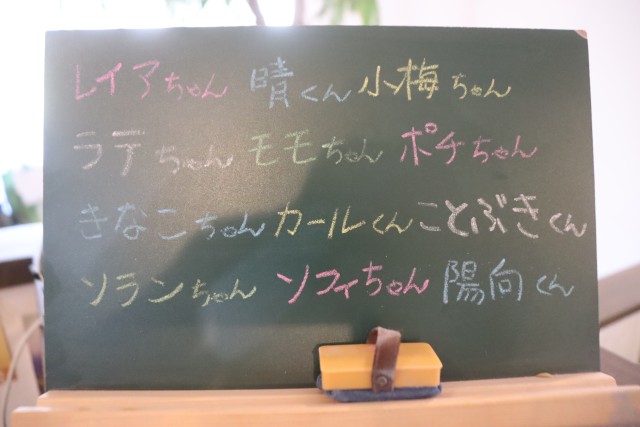 レイアちゃん 晴くん 小梅ちゃん
ラテちゃん モモちゃん ポチちゃん
きなこちゃん カールくん ことぶきくん
ソランちゃん ソフィちゃん 陽向くん